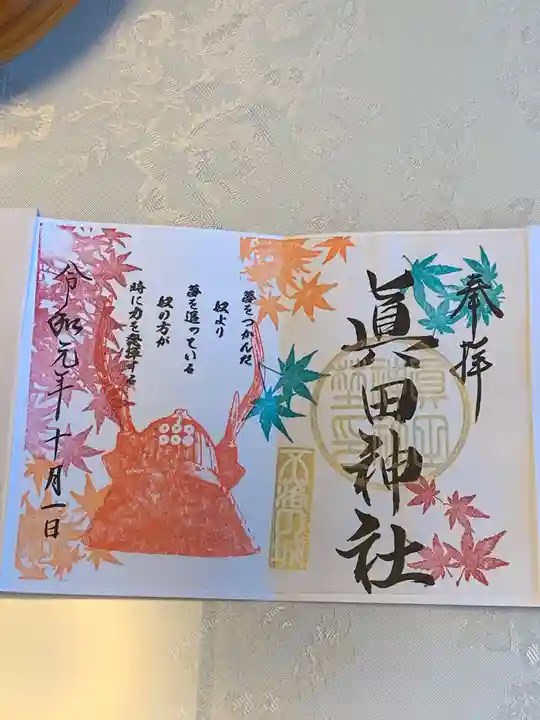 奉拝
眞田神社
不落の城
夢をつかんだ
奴より
夢を追っている
奴の方が
時に力を発揮する
令和元年十月一日